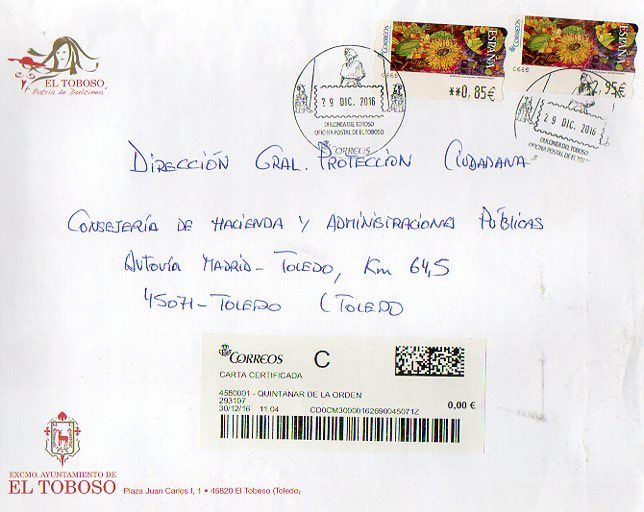 EL TOBOSO
Patria de Dulcinea
CORREOS
ESPAÑA
0685
**0,85€
CORREOS
ESPAÑA
0685
2,95€
29 DIC. 2016
DULCINEA DEL TOBOSO
OFICINA POSTAL DE EL TOBOSO
CORREOS
29 DIC. 2016
DULCINEA DEL TOBOSO
OFICINA POSTAL DE EL TOBOSO
DIRECCIÓN GRAL. PROTECCIÓN CIUDADANA
CONSEJERÍA DE HACIENDA Y ADMINISTRACIONES PÚBLICAS
AUTOVÍA MADRID-TOLEDO, Km 64,5
45071-TOLEDO (TOLEDO
CORREOS C
CARTA CERTIFICADA
4580001 - QUINTANAR DE LA ORDEN
293107
30/12/16 11:04 CD0CM30000162690045071Z
0,00 €
EXCMO. AYUNTAMIENTO DE
EL TOBOSO Plaza Juan Carlos I, 1 • 45820 El Toboso (Toledo,